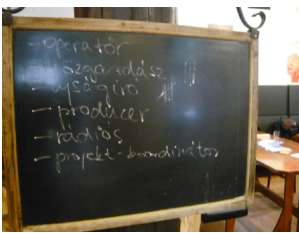 - operatőr
- újságíró
- producer
- rádiós
- projekt-koordinátor